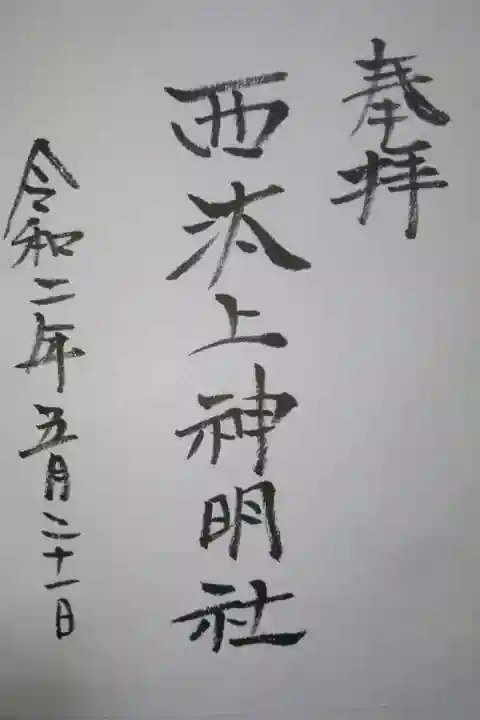 奉拝
西汰上神明社
令和二年五月二十一日